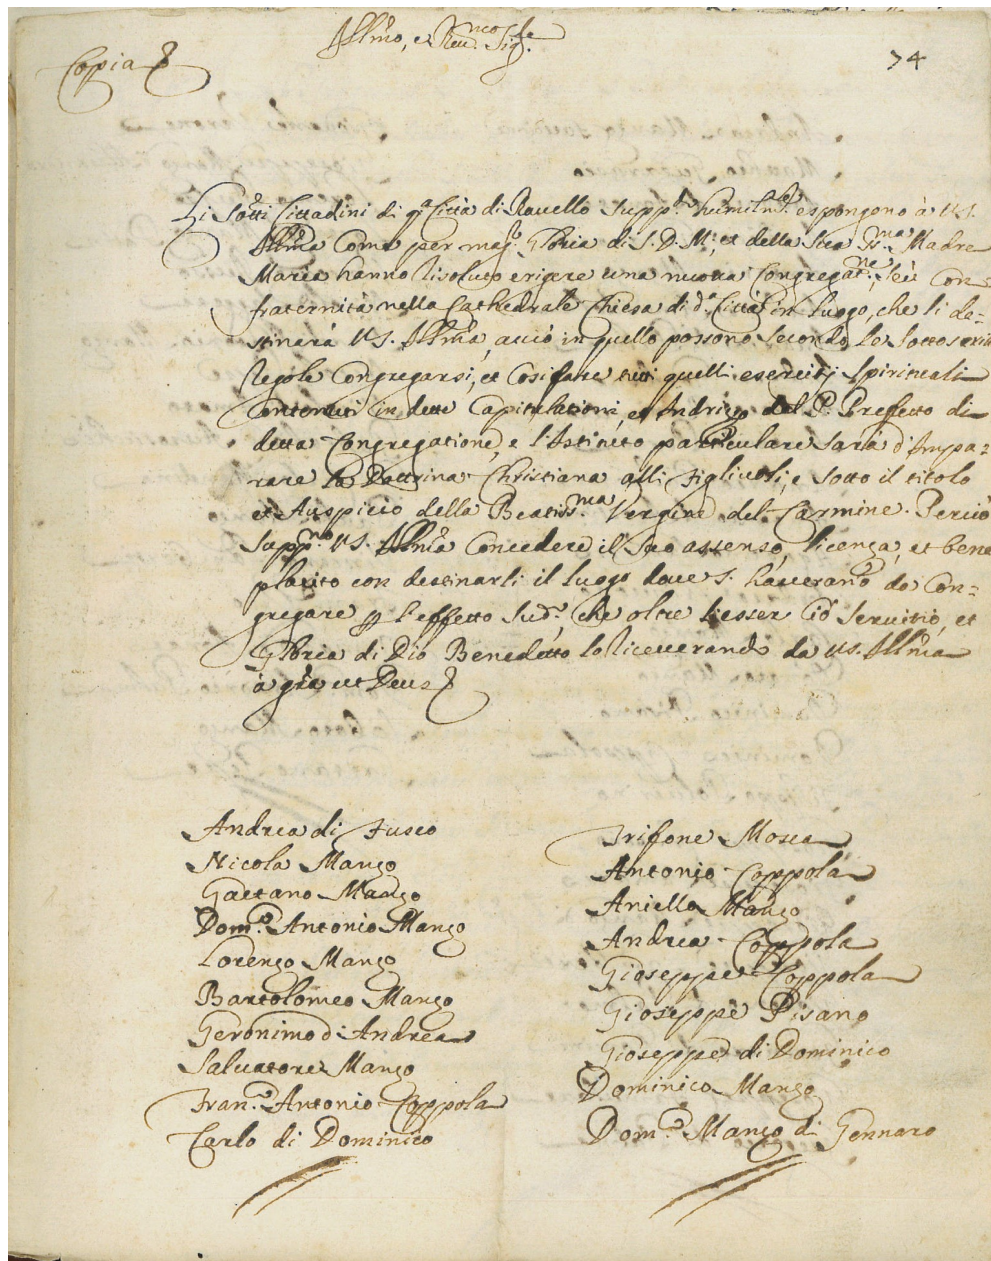 Illmo, e Reu.mo Sig.re
Copia
74
Li Sotti Cittadini di q.a Città di Rauello supp.ti humilm.te espongono à V.S.
Illma Come per mag.r Gloria di S. D. M., et della Sta Ss.ma Madre
Maria hanno risoluto erigere una nuoua Congregat.ne, seù Con
fraternità nella Cathedrale Chiesa di d.a Città in luogo, che li de=
stinerà V.S. Illma, acciò in quello possono secondo le sottoscritte
regole Congregarsi, et Cosi fare tutti quelli esercitij spirituali
Contenuti in dette Capitulationi, et Indrizzo del P. Prefetto di
detta Congregatione, e l'Istituto particulare sarà d'Impa=
rare la Dottrina Christiana alli figliuoli, e sotto il titolo
et Auspicio della Beatiss.ma Vergine del Carmine. Perciò
supp.no V.S. Illma Concedere il suo assenso, licenza, et bene
placito con destinarli il luogo doue s. haueranno da Con=
gregare p l'effetto sud.o, che oltre l'esser Ciò seruitio, et
Gloria di Dio Benedetto lo riceueranno da V.S. Illma
à gra ut Deus
Andrea di Fusco
Nicola Manzo
Gaetano Manzo
Dom.co Antonio Manzo
Lorenzo Manzo
Bartolomeo Manzo
Geronimo d'Andrea
Saluatore Manzo
Fran.co Antonio Coppola
Carlo di Dominico
Trifone Mosca
Antonio Coppola
Aniello Manzo
Andrea Coppola
Gioseppe Coppola
Gioseppe Pisano
Gioseppe di Dominico
Dominico Manzo
Dom.co Manzo di Gennaro